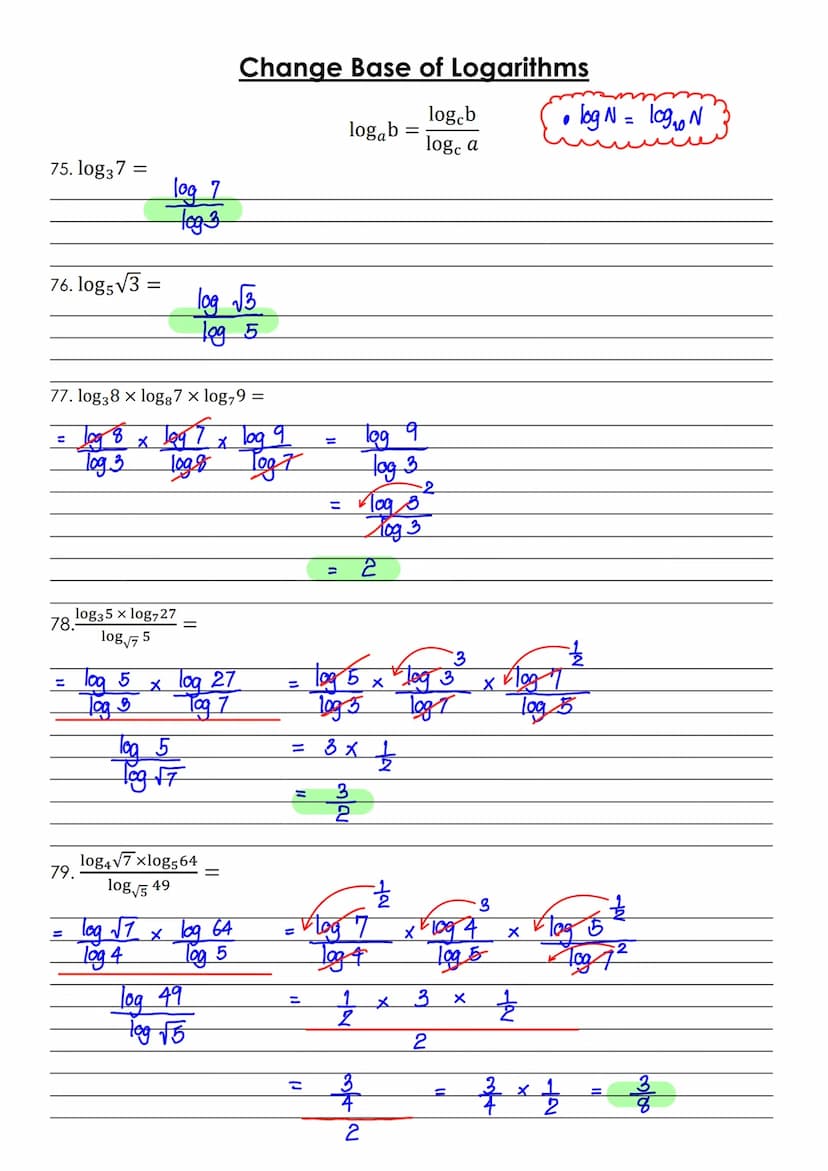 Change Base of Logarithms
logₐb = log_c b / log_c a
• log N = log₁₀ N
75. log₃7 =
log 7 / log 3
76. log₅√3 =
log √3 / log 5
77. log₃8 × log₈7 × log₇9 =
= log 8 / log 3 × log 7 / log 8 × log 9 / log 7 = log 9 / log 3
= log 3² / log 3
= 2
78. (log₃5 × log₇27) / log_√7 5 =
= (log 5 / log 3 × log 27 / log 7) / (log 5 / log √7) = log 5 / log 3 × log 3³ / log 7 × log 7^(1/2) / log 5
= 3 × 1/2
= 3/2
79. (log₄√7 × log₅64) / log_√5 49 =
= (log √7 / log 4 × log 64 / log 5) / (log 49 / log √5) = log 7^(1/2) / log 4 × log 4³ / log 5 × log 5^(1/2) / log 7²
= (1/2 × 3 × 1/2) / 2
= (3/4) / 2 = 3/4 × 1/2 = 3/8